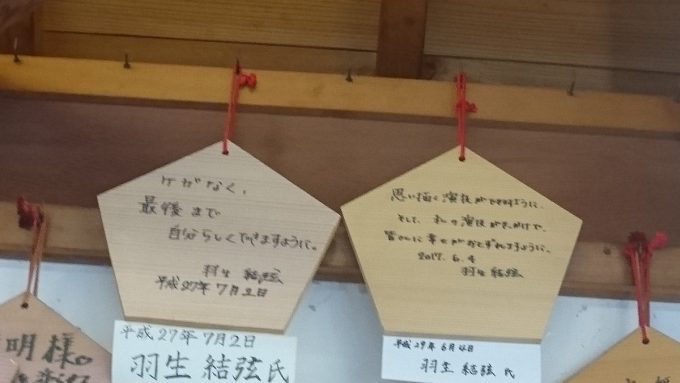 ケガなく、
最後まで
自分らしくできますように。
羽生 結弦
平成27年7月2日
平成27年7月2日
羽生 結弦氏
思い描く演技ができますように、
そして、私の演技がきっかけで、
皆さんに幸せがおとずれますように、
2017.6.4
羽生 結弦
平成29年6月4日
羽生 結弦 氏
明様。